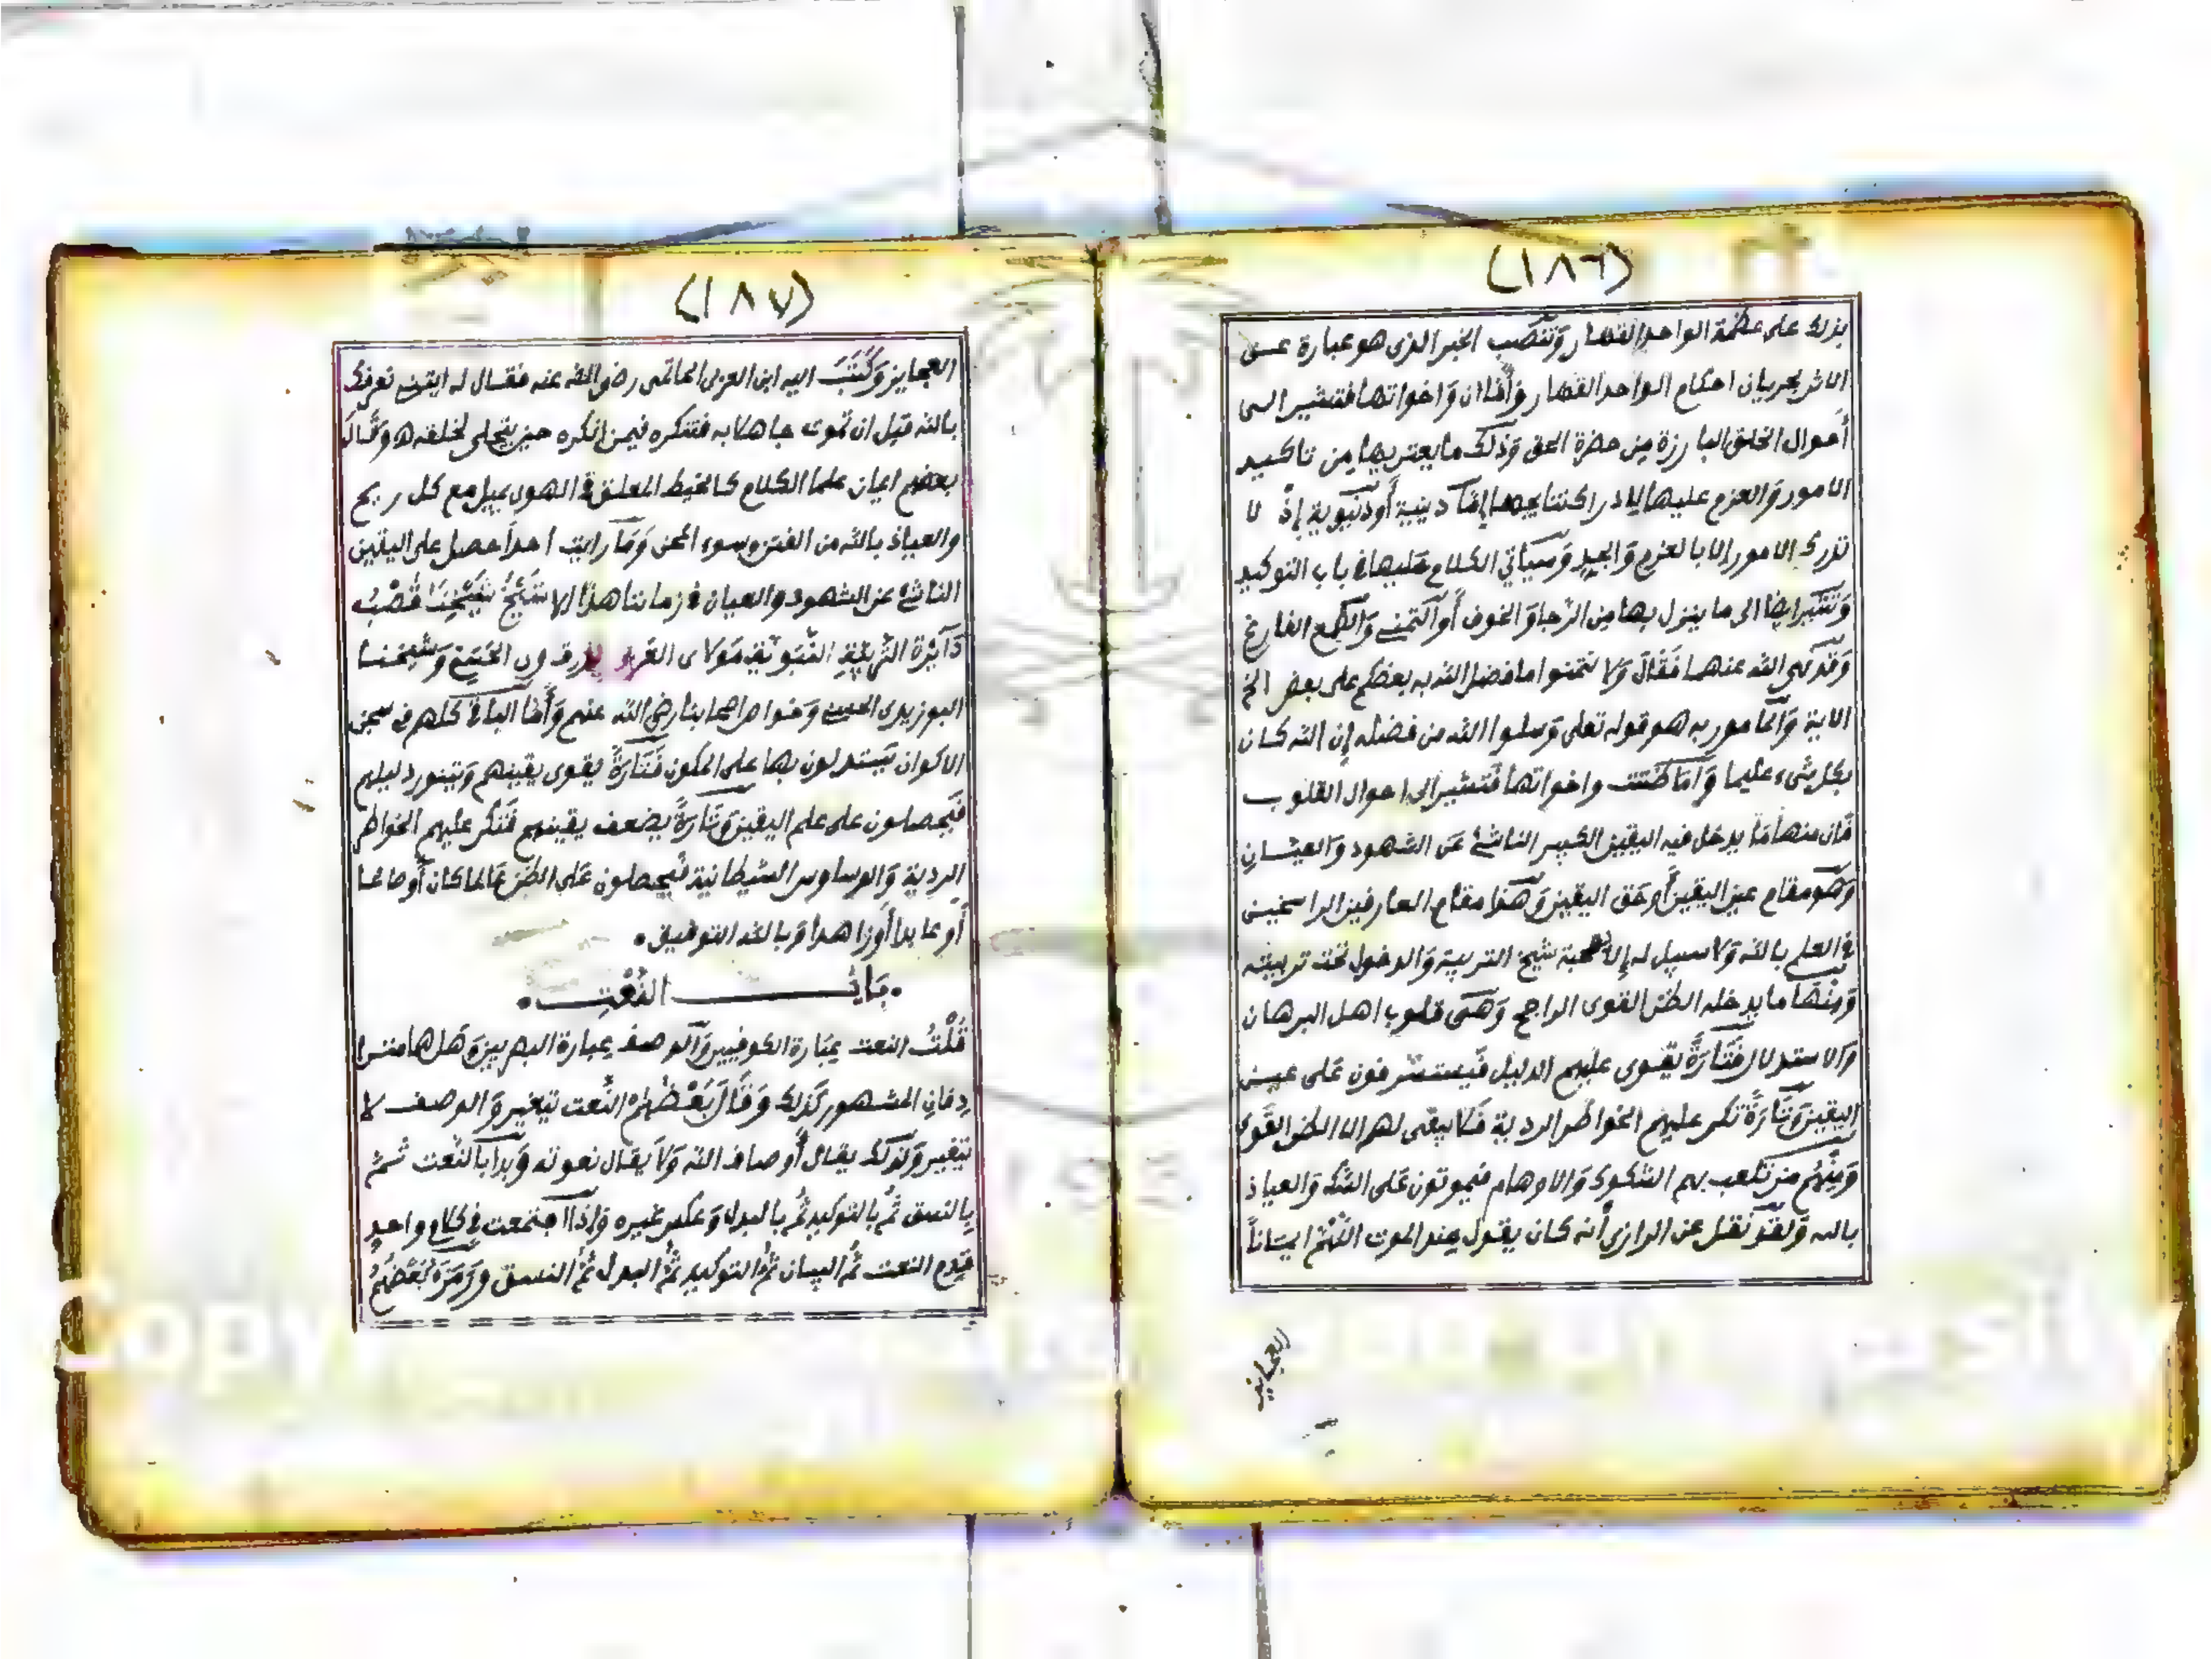 (١٨٦)
بذلك على عظمة الواحد القهار وَتنصب الخبر الذى هو عبارة عـن
الاثر بجريان احكام الواحد القهار وَأما ان وَاخواتها فتشير الـى
أحوال الخلق البارزة مِن حضرة الحق وَذلك ما يعتريها مِن تاكـيد
الامور وَالعزم عليها لادراك نتايجها إمّا دينية أودُنْيَوية إذْ لا
تدرك الامور إلا بالعزم وَالجِد وَسيأتي الكلام عَليها فى باب التوكيد
وَتشير ايضا الى ما ينزل بها مِن الرَّجا وَالخوف أَو التمنى وَالطمع الفارغ
وَقد نهى الله عنهما فَقَالَ وَلا تتمنوا ما فضل الله به بعضكم على بعض الخ
الاية وَالمأمور به هو قوله تعلى وَسلوا الله من فضله إن الله كـان
بكل شىء عليما وَأمَّا ظننت واخواتها فَتشير الى احوال القلوب
فَان منها مَا يدخل فيه اليقين الكبير الناشئ عَن الشهود وَالعيـان
وَهُو مقام عين اليقين أَو حَق اليقين وَهَذا مقام العارفين الراسخيـن
فى العلم بالله وَلا سبيل له إلا بصحبة شيخ التربية وَالدخول تحت تربيته
وَمِنْهَا ما يدخله الظن القوى الراجح وَهى قلوب اهل البرهان
وَالاستدلال فَتَارَةً يقوى عليهم الدليل فَيستشرفون عَلى عيـن
اليقين وَتَارَةً تكر عليهم الخواطر الردية فَلا يبقى لهم الا الظن القَوى
وَمِنْهُم مَن تلعب بهم الشكوك وَالاوهام فيموتون عَلى الشك وَالعياذ
بالله وَلقَد نقل عن الرازى أنه كان يقول عِند الموت اللّهُمّ ايمـاناً
العجايز
(١٨٧)
العجايز وَكَتَبَ اليه ابن العربى الحاتمى رضى الله عنه فقـال له ايتنـى نعرفك
بالله قبل ان تموت جاهلا به فتنكره فيمن انكره حين يتجلى لخلقه هـ وَقَـالَ
بعضهم ايمان علما الكلام كالخيط المعلق فى الهوى يميل مع كل ريح
والعياذ بالله من الفتن وسوء المحن وَمَا رايت احداً حصل على اليقين
الناشئ عن الشهود والعيان فى زماننا هذا إلا شَيْخُ شَيْخِنَا قُطْبُ
دَآئِرَةِ التَّرْبِيَةِ النَّبَوِيَّةِ مَولاى العَربى الدرقاوى الحَسَنِى وَشيخنـا
البوزيدى الحسنى وَخواص اصحابنا رضى الله عنهم وَأما الباقى كلهم فى سجن
الاكوان يَستدلون بها على المكون فَتَارَةً يقوى يقينهم وَيتنور دليلهم
فَيَحصلون على علم اليقين وَتَارَةً يضعف يقينهم فَتكر عليهم الخواطر
الردية وَالوساوس الشيطانية فَيحصلون عَلى الظن عَالما كان أَو صالحـا
أَو عابدا أَوزاهدا وَبالله التوفيق .
. بَابُ النَّعْتِ .
قُلْتُ النعت عِبَارة الكوفيين وَالوصف عِبارة البصريين وَهَل هما متـرا
دِفانِ المشهور كَذلك وَقَالَ بَعْضُهُم النَّعت يتغير وَالوصف لا
يتغير وَلذلك يقال أَوصاف الله وَلَا يقال نعوته وَبدأ بالنَّعت ثـم
بالنسق ثُم بالتوكيد ثُم بالبدل وَعكس غيره وَإذَا اجتمعت فى كلام واحدٍ
قدم النعت ثُم البيان ثُم التوكيد ثُم البدل ثُم النسق وَرَمزَهُ بَعْضُهُمُ